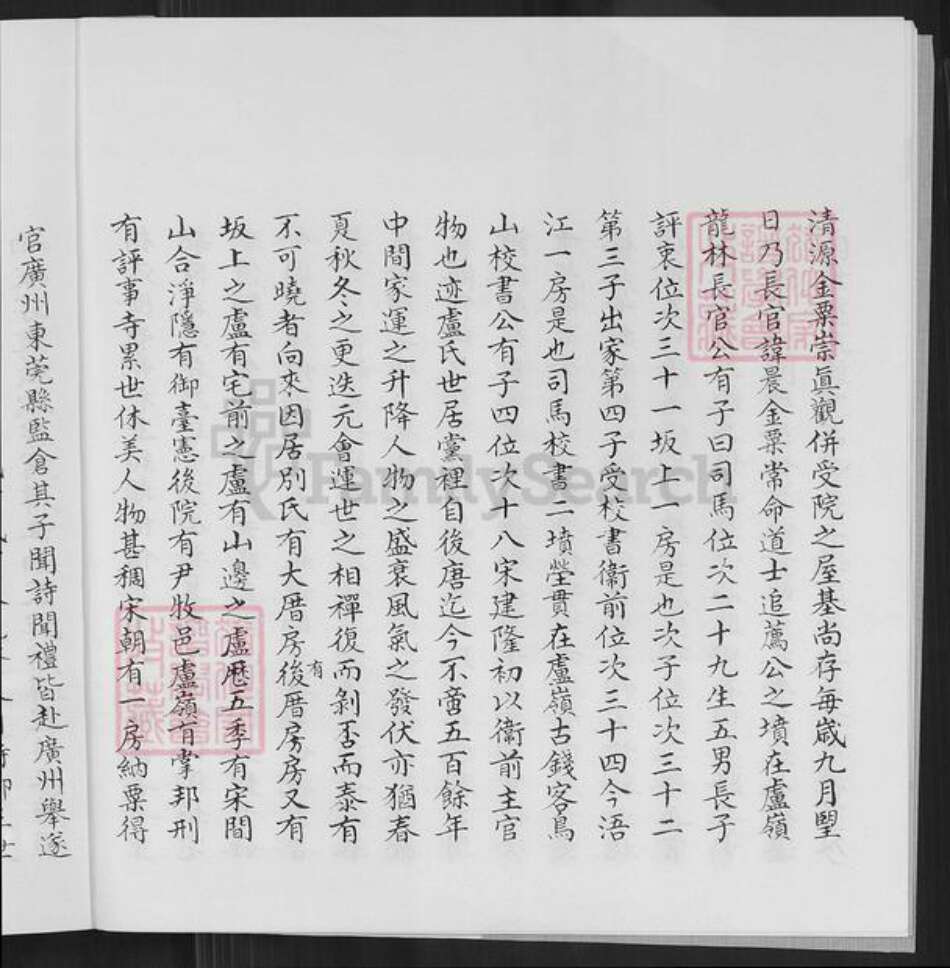 清源金粟崇眞觀併受院之屋基尚存每歲九月朢
日乃長官諱晨金粟常命道士追薦公之墳在盧嶺
龍林長官公有子曰司馬位次二十九生五男長子
評衷位次三十一坂上一房是也次子位次三十二
第三子出家第四子受校書衞前位次三十四今浯
江一房是也司馬校書二墳塋貫在盧嶺古錢客鳥
山校書公有子四位次十八宋建隆初以衞前主官
物也迹盧氏世居黨裡自後唐迄今不啻五百餘年
中間家運之升降人物之盛衰風氣之發伏亦猶春
夏秋冬之更迭元會運世之相禪復而剝否而泰有
不可曉者向來因居別氏有大厝房後有厝房房又有
坂上之盧有宅前之盧有山邊之盧歷五季有宋間
山合淨隱有御臺憲後院有尹牧邑盧嶺有掌邦刑
有評事寺累世休美人物甚稠宋朝有一房納粟得
官廣州東莞縣監倉其子聞詩聞禮皆赴廣州舉遂
FamilySearch